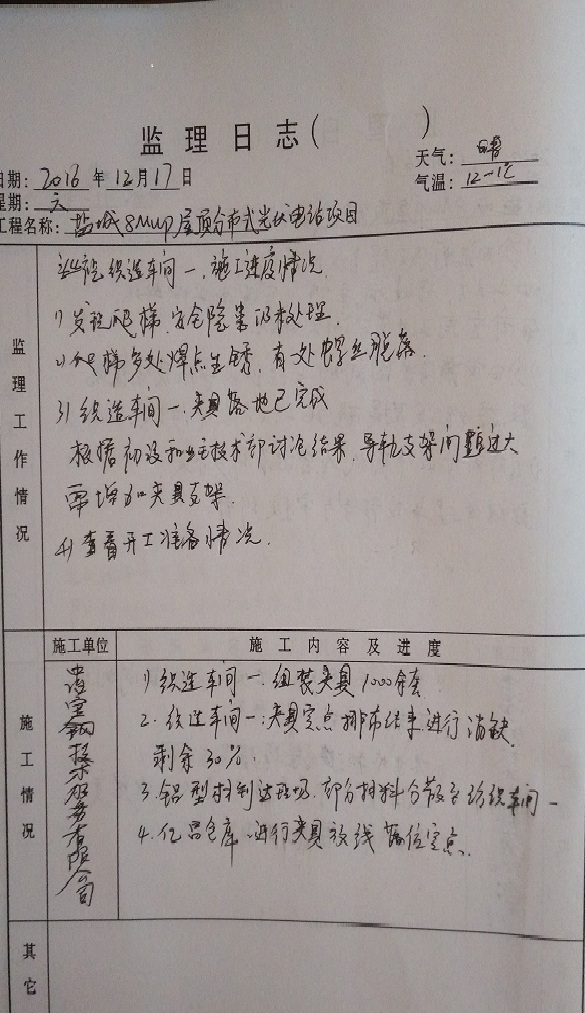 监理日志( )
天气: 晴
日期: 2016 年 12月17日
气温: 12-1℃
星期: 六
工程名称: 盐城8MWp屋顶分布式光伏电站项目
监理工作情况
巡视织造车间一.施工进度情况.
1) 发现爬梯,安全隐患仍未处理.
2) 爬梯多处焊点生锈,有一处螺丝脱落.
3) 织造车间一.夹具落地已完成
根据初设和业主技术部讨论结果,导轨支架间距过大
需增加夹具支架.
4) 查看开工准备情况.
施工单位
施工内容及进度
施工情况
宝钢技术服务有限公司
1) 织造车间一.组装夹具1000余套
2. 织造车间一:夹具定点排布结束进行消缺.
剩余30%.
3. 铝型材到达现场.部分材料分散至纺织车间一
4. 化品仓库.进行夹具放线 落位定点.
其它